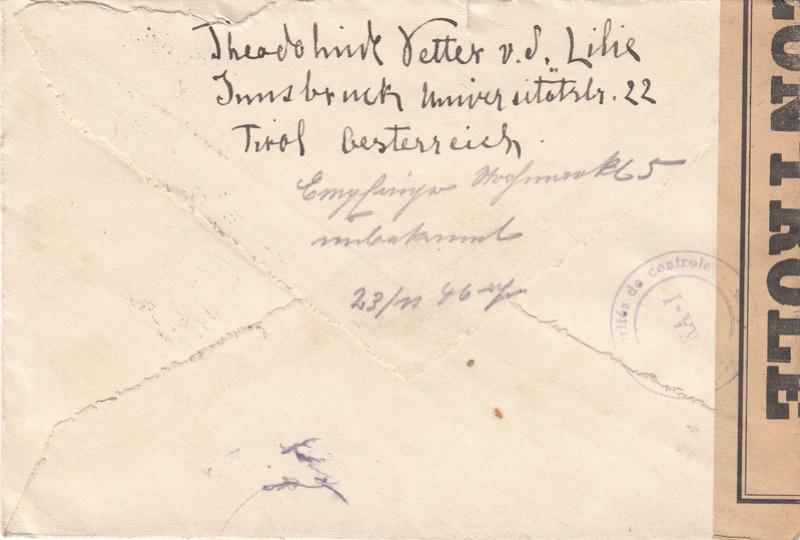 Theodolinde Vetter v. d. Lilie
Innsbruck Universitätstr. 22
Tirol Oesterreich.
Empfänger 65
unbekannt
23/11 46
CONTROLE
de controle